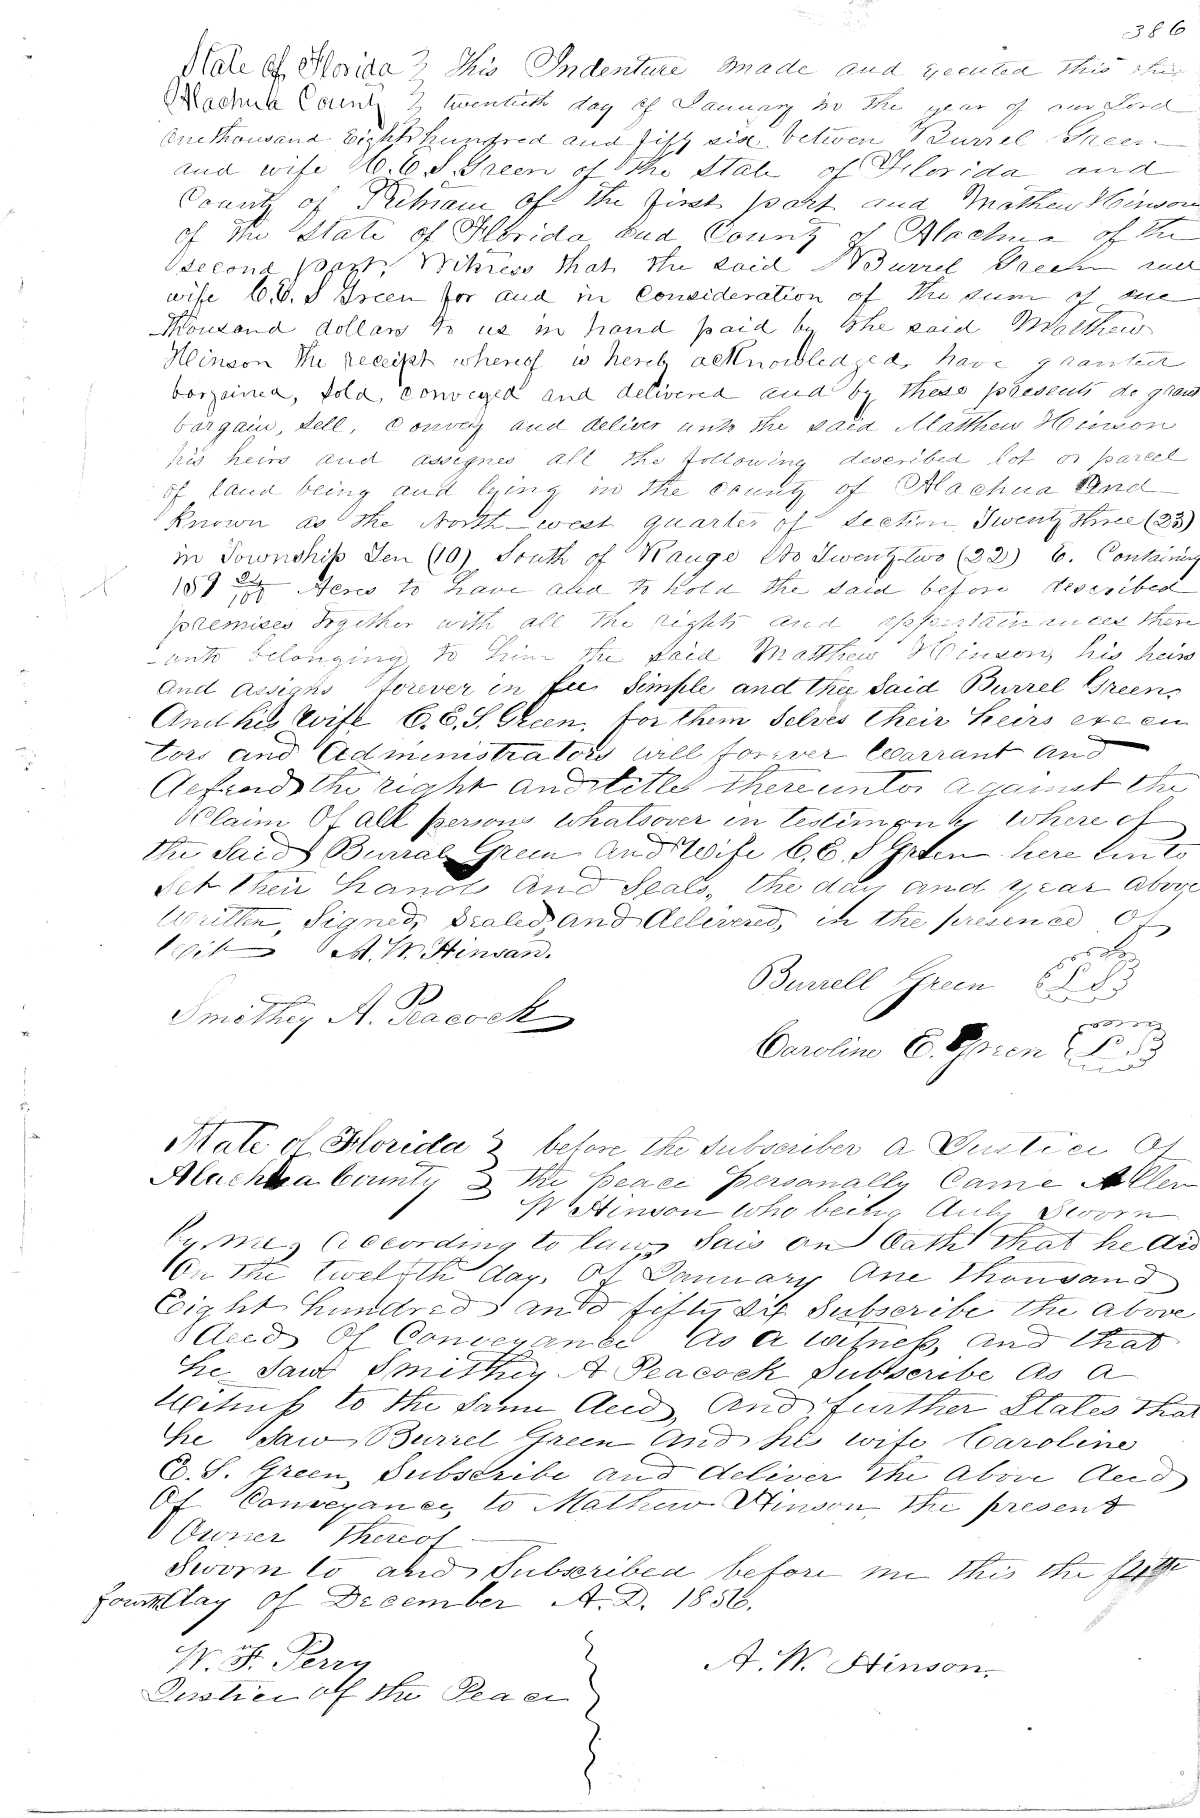 386
State of Florida } This Indenture made and executed this the
Alachua County } twentieth day of January in the year of our Lord
one thousand Eight hundred and fifty six between Burrel Green
and wife C. E. S. Green of the State of Florida and
County of Putnam of the first part and Mathew Hinson
of the State of Florida and County of Alachua of the
second part, Witness that the said Burrel Green and
wife C. E. S Green for and in consideration of the sum of one
thousand dollars to us in hand paid by the said Matthew
Hinson the receipt whereof is hereby acknowledged, have granted
bargained, sold, conveyed and delivered and by these presents do grant
bargain, sell, convey and deliver unto the said Matthew Hinson
his heirs and assignes all the following described lot or parcel
of land being and lying in the county of Alachua and
Known as the North-west quarter of section Twenty three (23)
in Township Ten (10) South of Range No Twenty-two (22) E. Containing
159 Acres to have and to hold the said before described
premises together with all the rights and appertainances there
-unto belonging to him the said Matthew Hinson, his heirs
and assigns forever in fee Simple and they Said Burrel Green.
And his Wife C. E. S. Green. for them selves their heirs execu
tors and Administrators will forever Warrant and
defend the right and title thereunto against the
Claim Of all persons whatsover in testimony where of
the Said Burral Green and Wife C. E. S Green here unto
Set their hands and Seals, the day and year above
Written, Signed, Sealed, and delivered, in the presence Of
A. W. Hinson.
Burrell Green L S
Smithey A. Peacock
Caroline E. Green L. S
State of Florida } before the subscriber a Justice Of
Alachua County } the peace personally Came Allen
W Hinson who being duly Sworn
by me, according to law, Sais on Oath that he did
On the twelfth day. Of January One thousand
Eight hundred and fifty six Subscribe the above
deed Of Conveyance As a witness, and that
he saw Smithey A Peacock Subscribe as a
Witness to the same deed, and further States that
he saw Burrel Green and his wife Caroline
E. S. Green, Subscribe and deliver the above deed
Of Conveyance, to Mathew Hinson, the present
Owner thereof
Sworn to and Subscribed before me this the
fourth day of December A. D. 1856.
W. F. Perry
A. W. Hinson.
Justice of the Peace